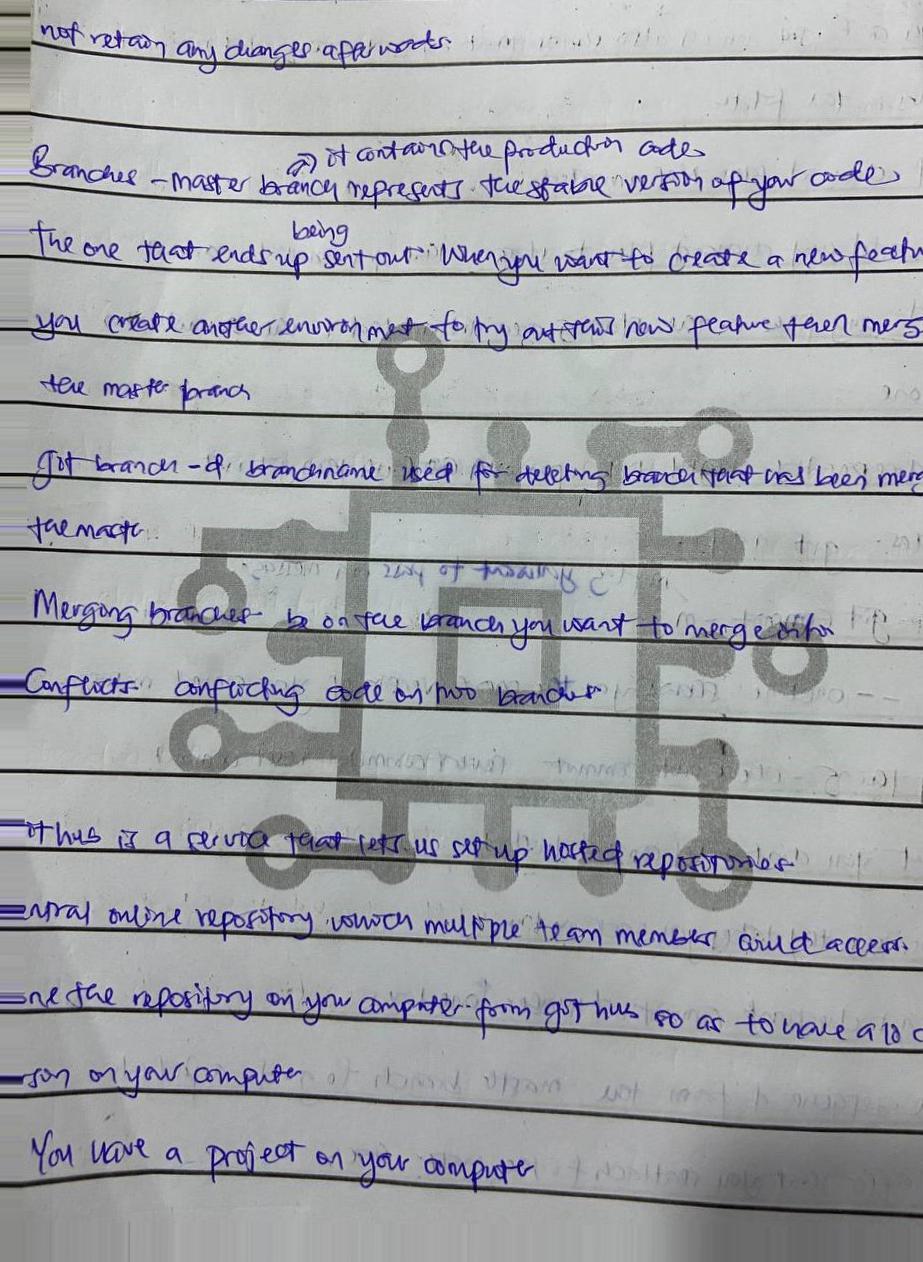 not retain any changes afterwards.
it contains the production code
Branches - master branch represents the stable version of your code,
being
the one that ends up sent out. When you want to create a new featu
you create another environment to try out this new feature then merg
the master branch
git branch -d branchname used for deleting branch that has been merg
the maste
Merging branches be on the branch you want to merge onto
Conflicts conflicting code on two branches
ithub is a service that lets us set up hosted repositories
entral online repository which multiple team members and access.
one the repository on your computer from git hub so as to have a loc
son on your computer
You have a project on your computer